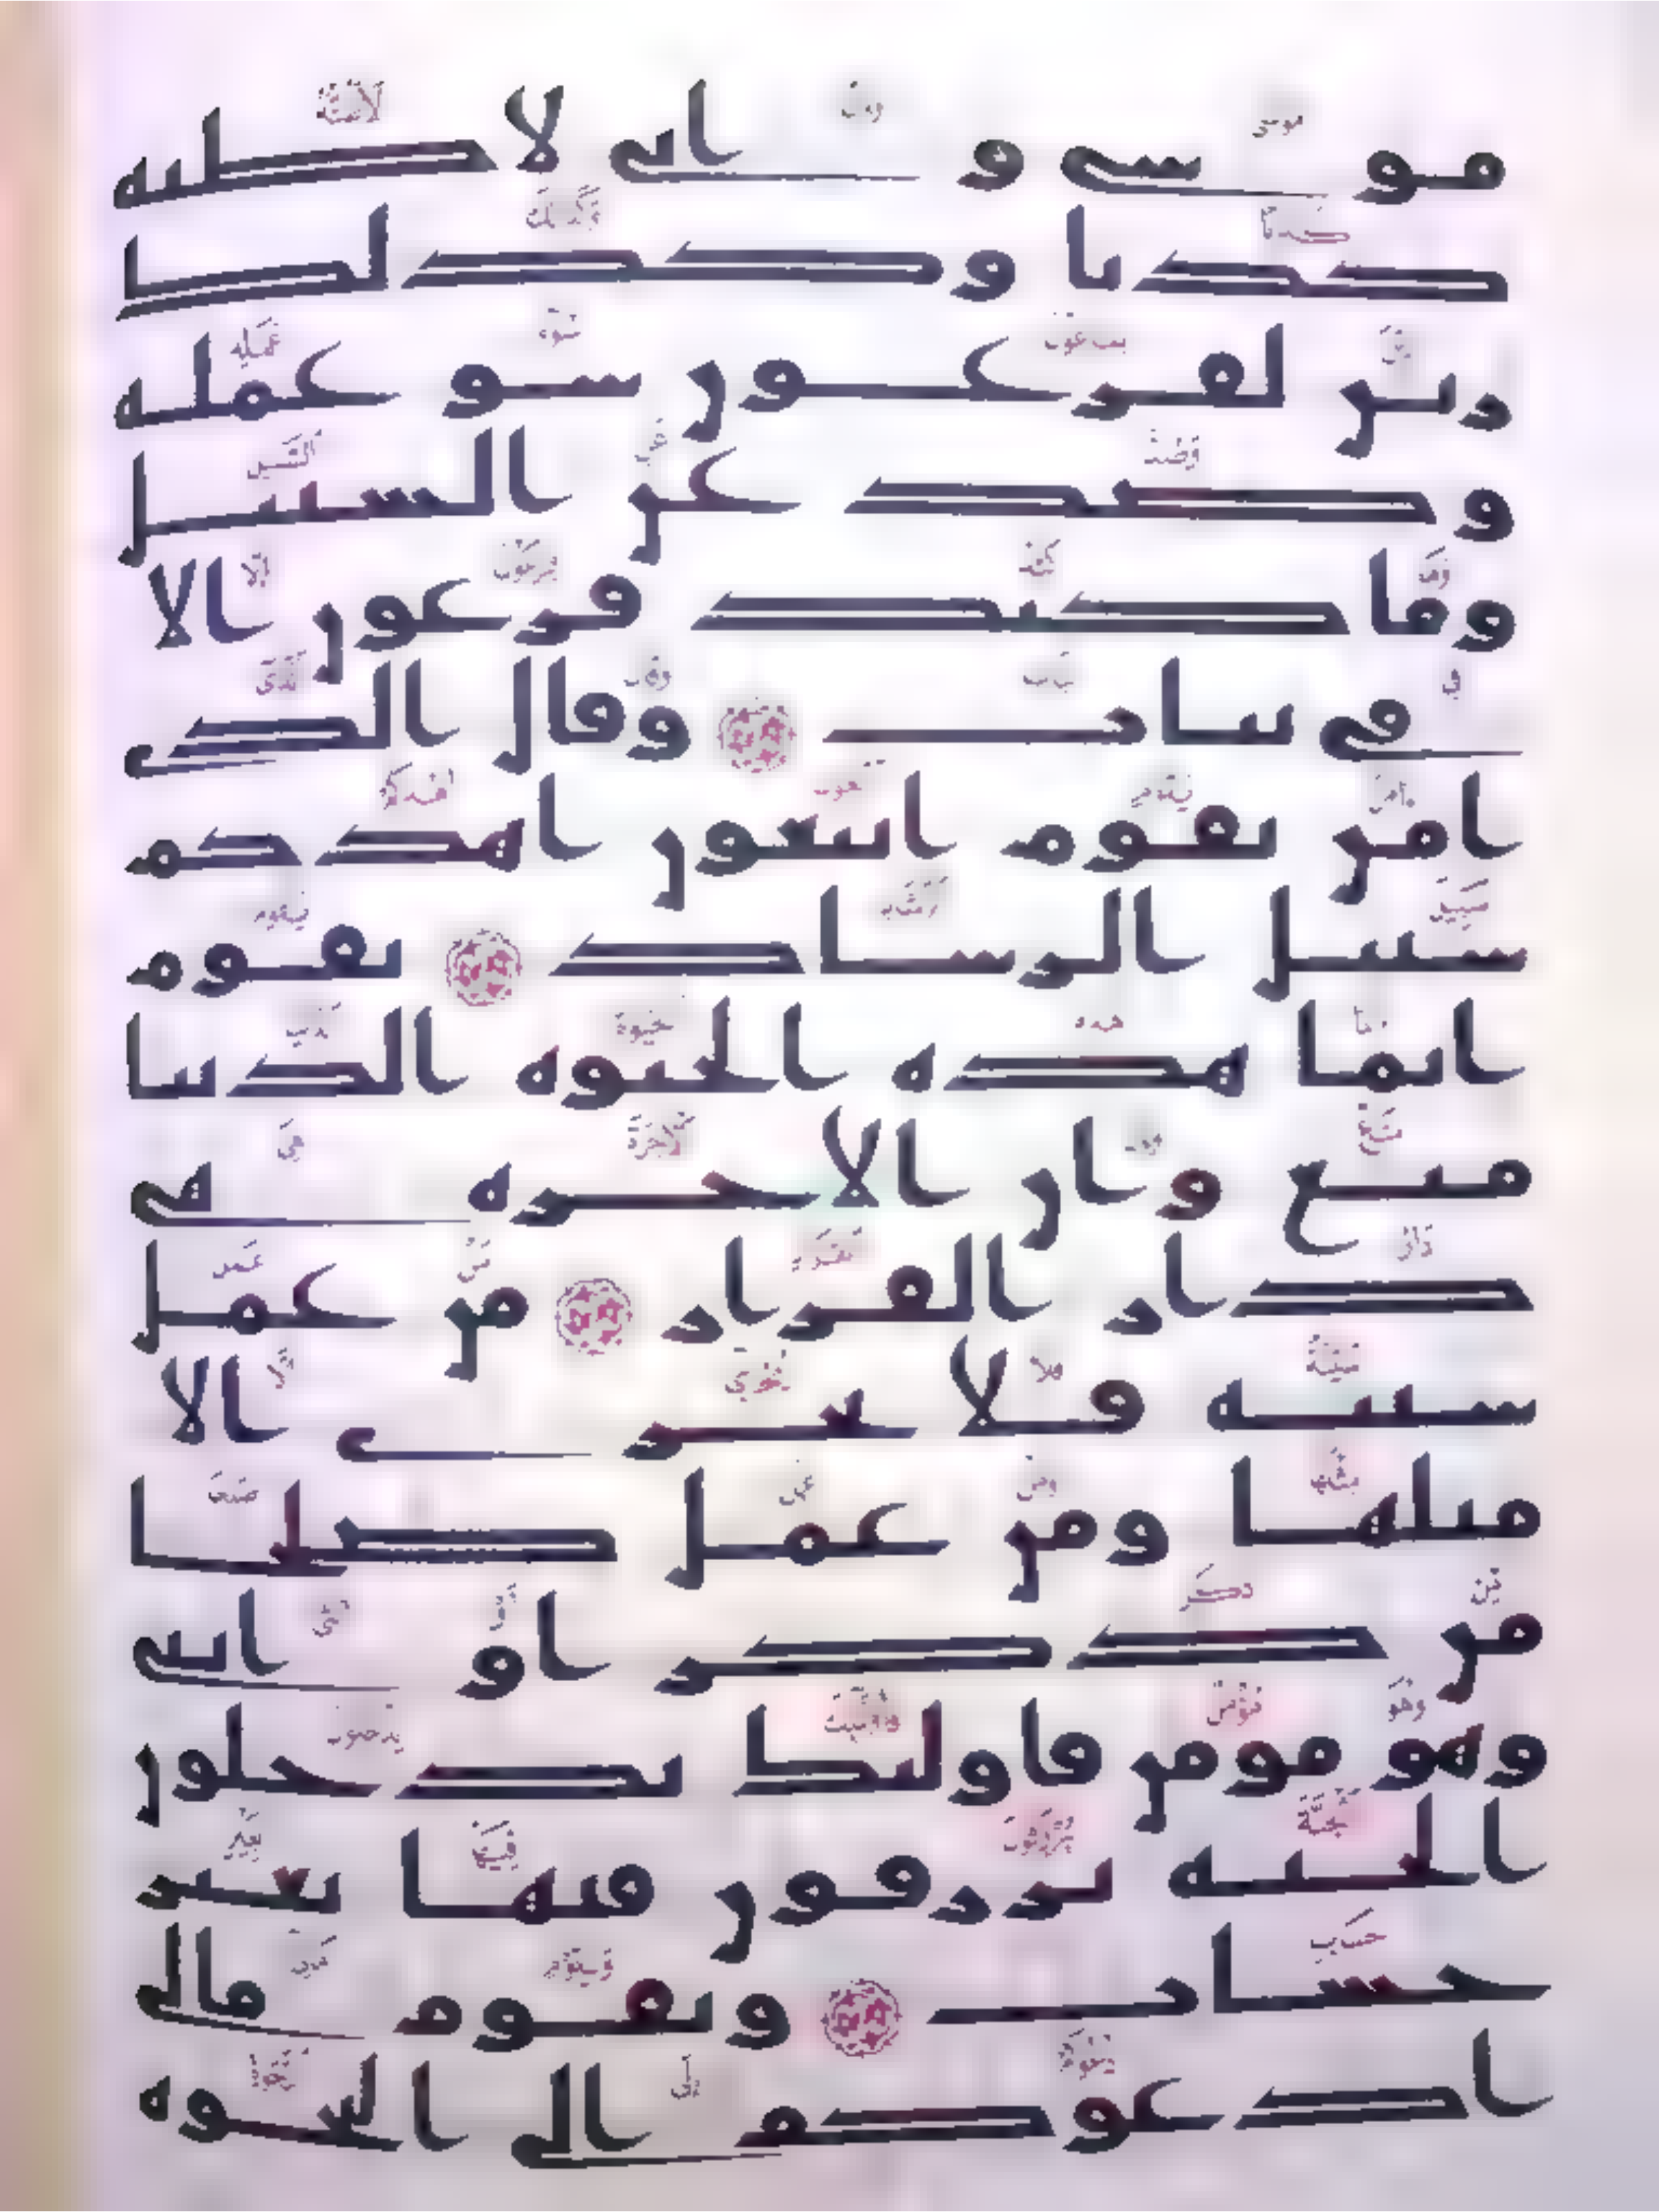 موسى وانى لاظنه
كذبا وكذلك
زين لفرعون سو عمله
وصد عن السبيل
وما كيد فرعون الا
فى تباب وقال الذى
امن يقوم اتبعون اهدكم
سبيل الرشاد يقوم
انما هذه الحيوه الدنيا
متع وان الاخره هى
دار القرار من عمل
سيئه فلا يجزى الا
مثلها ومن عمل صلحا
من ذكر او انثى
وهو مومن فاولئك يدخلون
الجنه يرزقون فيها بغير
حساب ويقوم مالى
ادعوكم الى النجوه